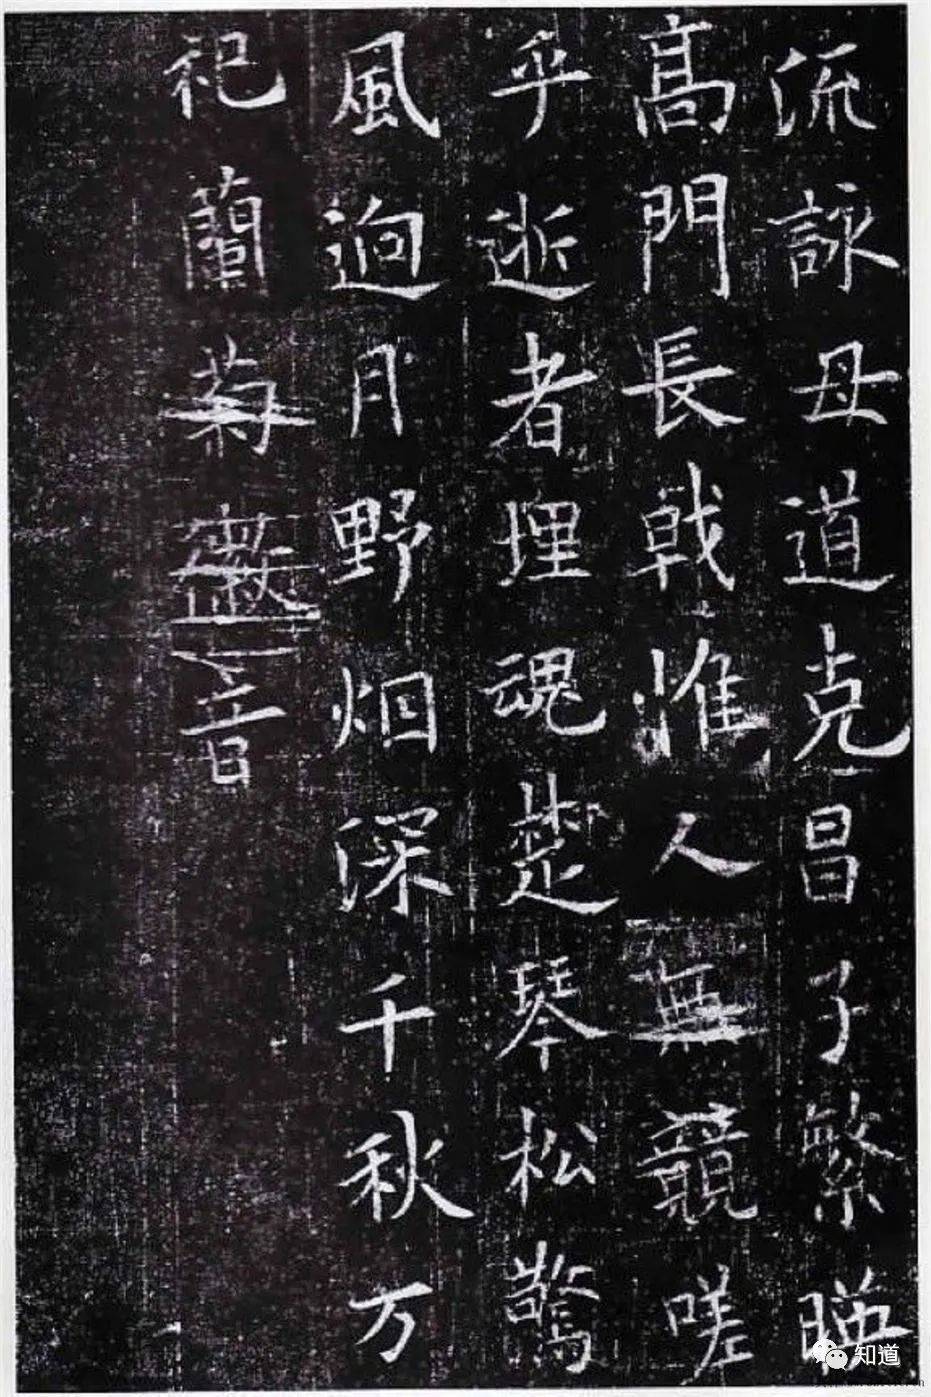 流詠母道克昌子繁暎
高門長戟惟人無競嗟
乎逝者埋魂楚琴松驚
風逈月野烟深千秋万
祀蘭菊徽音
知道